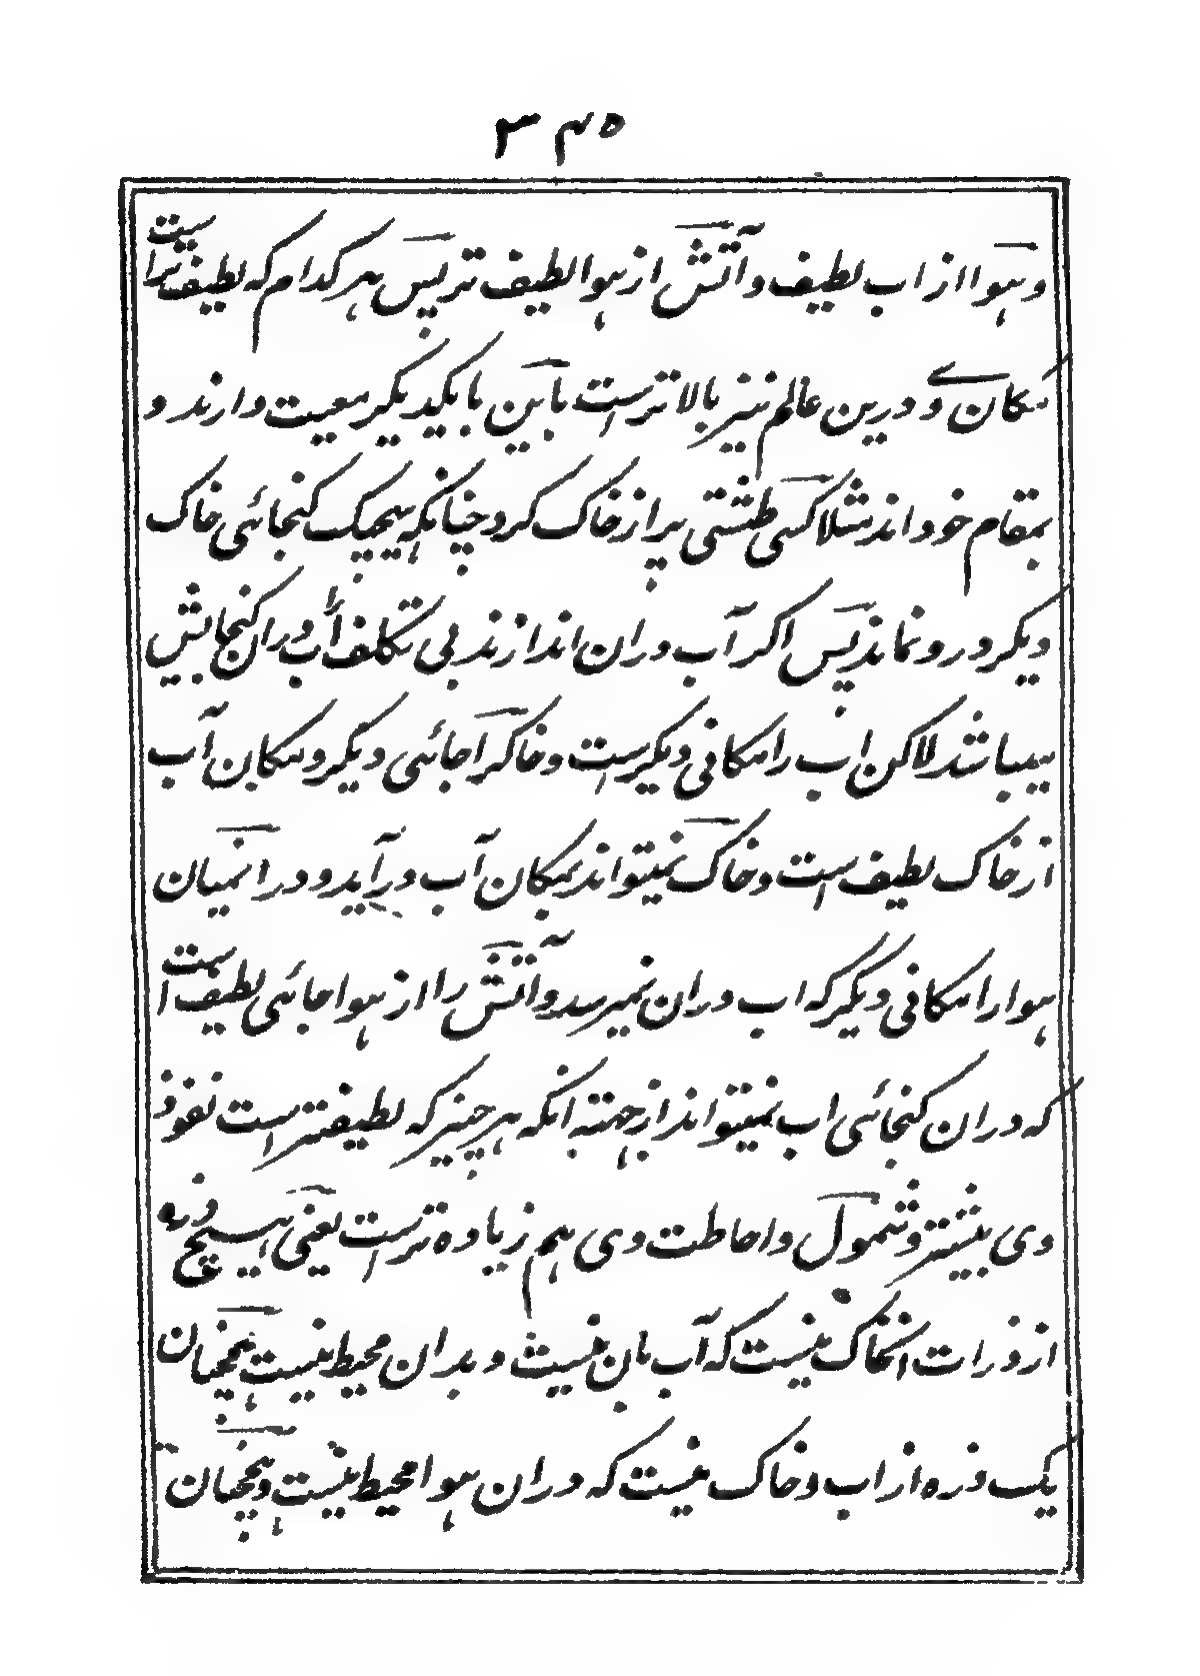 ۳۴۵
و هوا از اب لطیف و آتش از هوا لطیف تر پس هر کدام که لطیف تر است
مکان وے درین عالم نیز بالاتر است با این با یکدیگر معیت دارند و
بمقام خود اند مثلا کسی طشتی پر از خاک کرد چنانکه هیچیک کنجائی خاک
دیکر در و نماند پس اکر آب دران اندازند بی تکلف آب دران کنجایش
میباشد لاکن اب را مکانی دیکر است و خاکرا جائی دیکر و مکان آب
از خاک لطیف است و خاک نمیتواند بمکان آب در آید و درانمیان
هوا را مکانی دیکر که اب دران نمیرسد و آتش را از هوا جائی لطیف است
که دران کنجائی اب نمیتواند از جهته انکه هر چیز که لطیفتر است نفوذ
وی بیشتر و شمول و احاطت وی هم زیاده تر است یعنی هیچ ذره
از ذرات انخاک نیست که آب بان نیست و بدان محیط نیست همچنان
یک ذره از اب و خاک نیست که دران هوا محیط نیست و همچنان